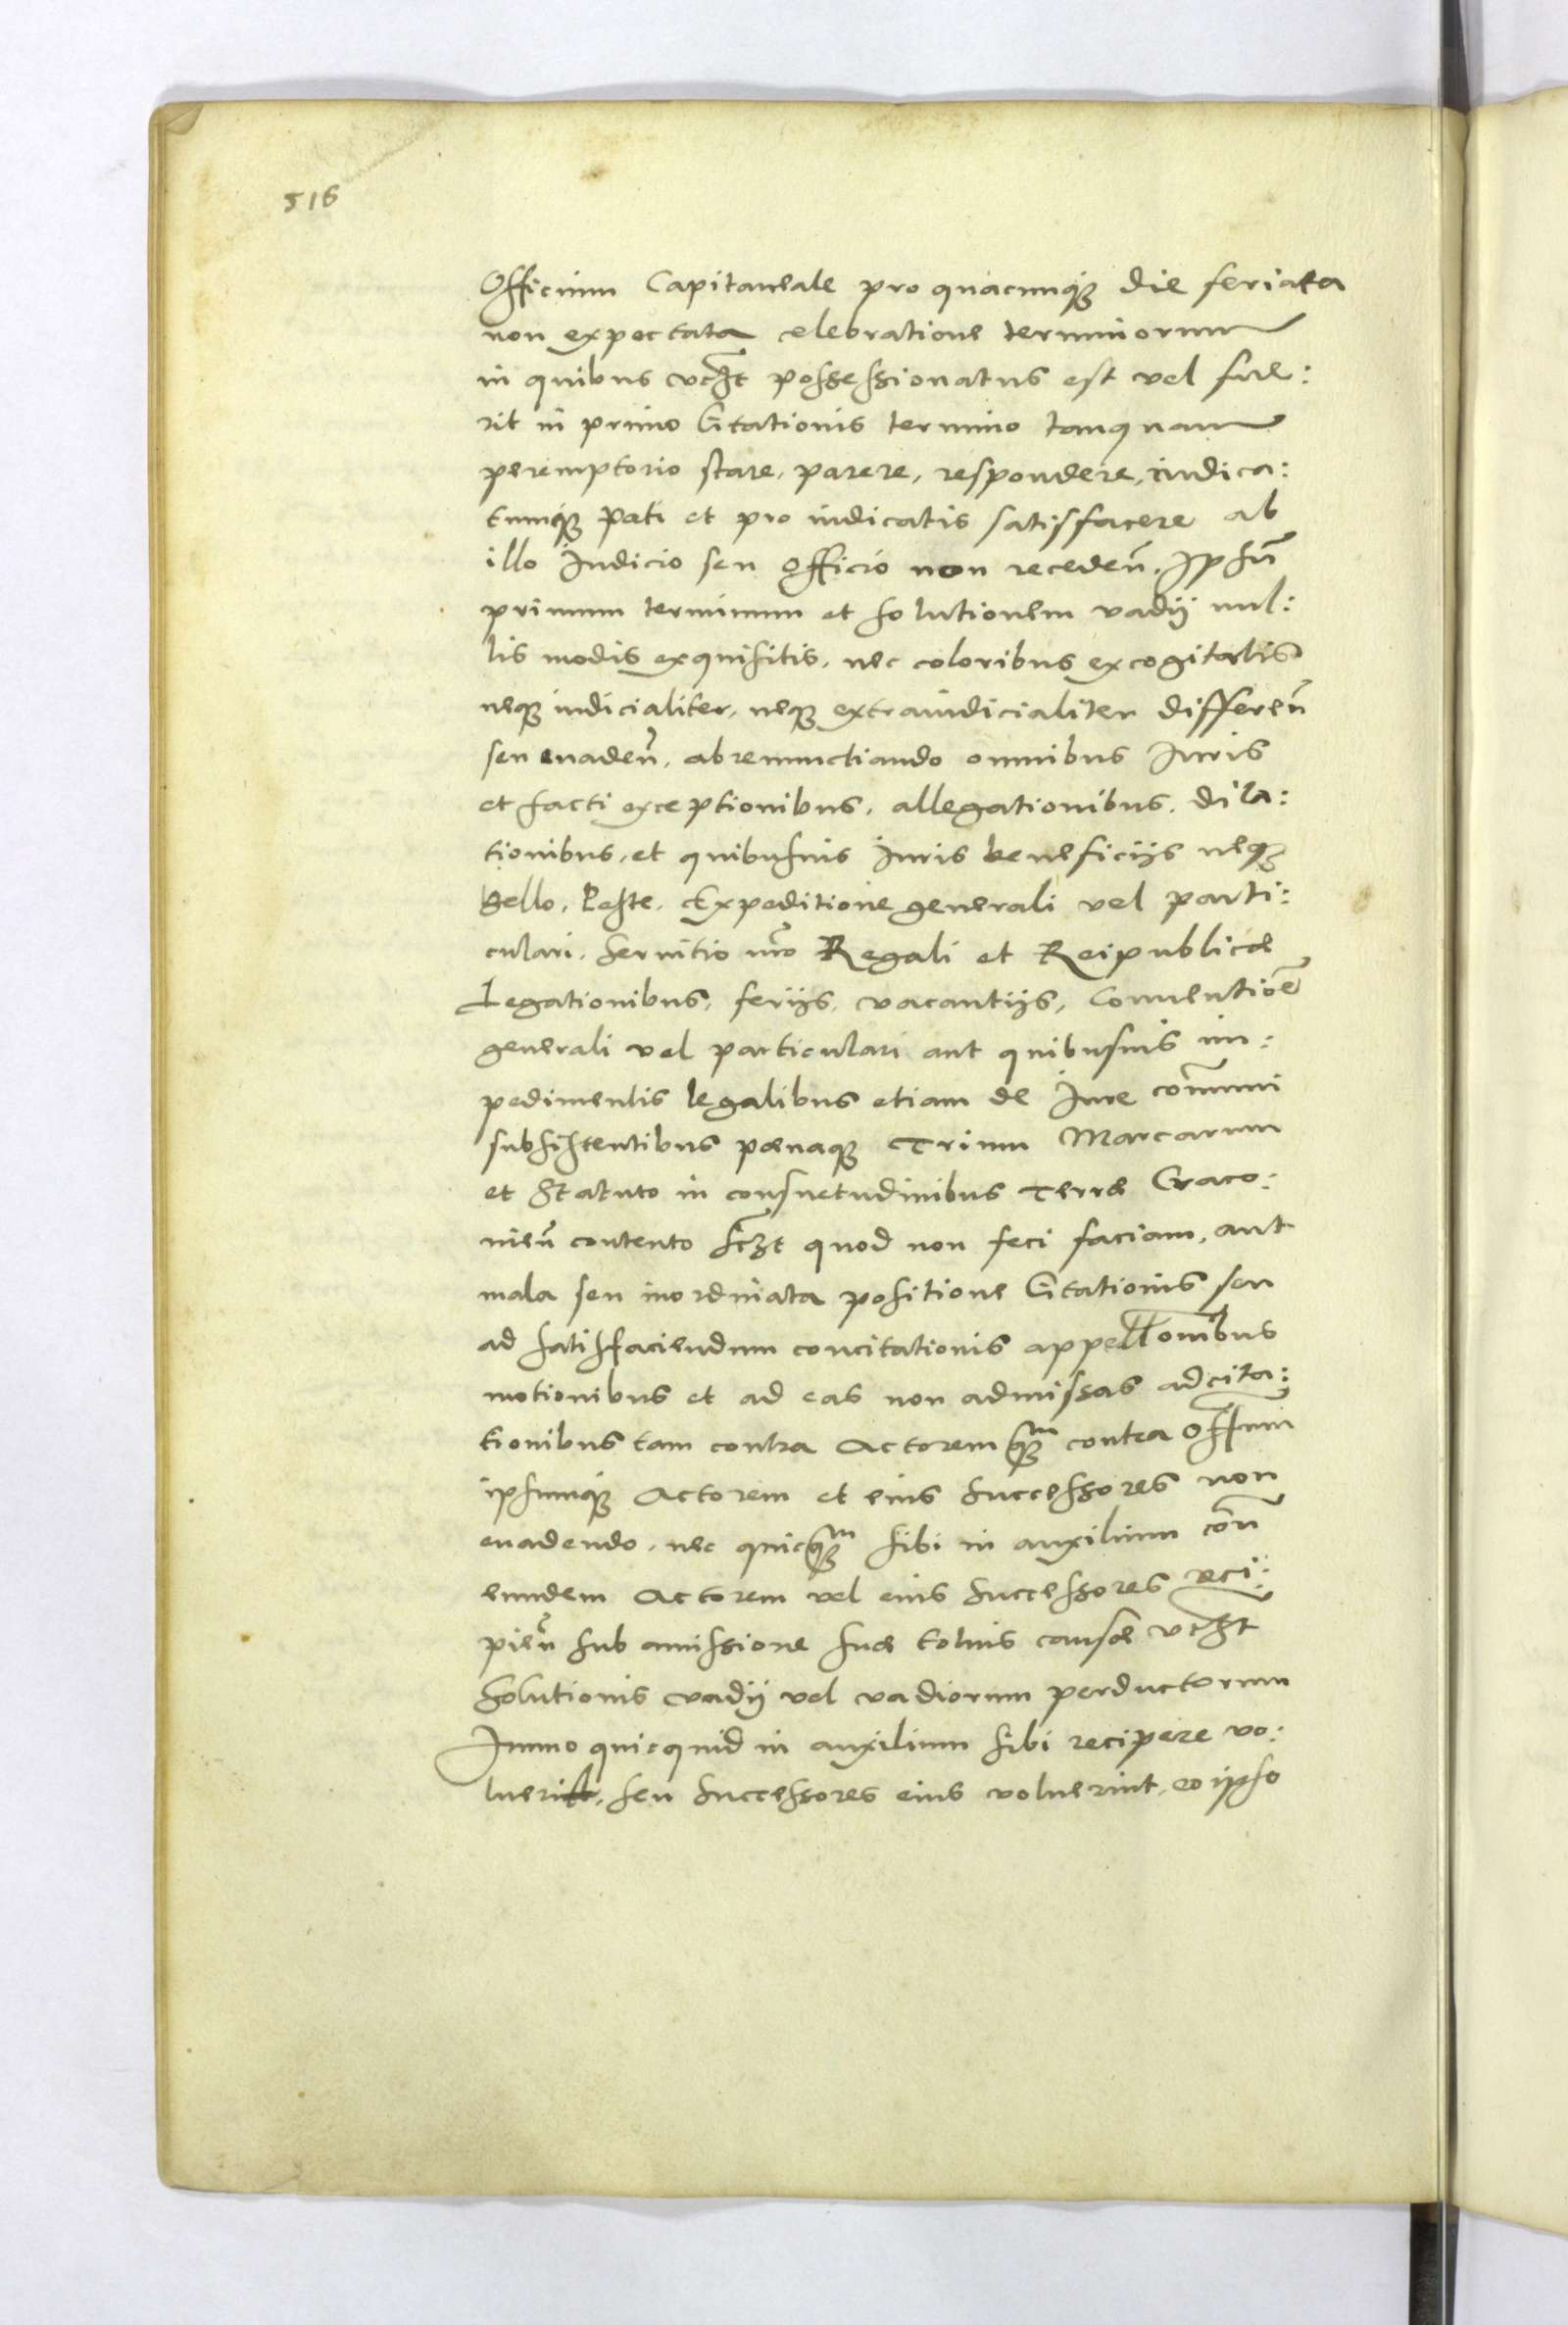 516
Officium Capitaneale pro quacunq₃ die feriata
non expectata celebratione terminorum
in quibus vt₃t possessionatus est vel fue:
rit in primo Citationis termino tanquam
peremptorio stare, parere, respondere, iudica:
tumq₃ pati et pro iudicatis satisfacere ab
illo Iudicio seu officio non receden̄. Ipsū
primum terminum et solutionem vadij nul:
lis modis exquisitis, nec coloribus excogitatis
neq₃ iudicialiter, neq₃ extraiudicialiter differen̄
seu euaden̄, abrenunctiando omnibus Iuris
et facti exceptionibus, allegationibus, dila:
tionibus, et quibusuis Iuris beneficijs neq₃
Bello, Peste, Expeditione generali vel parti:
culari, Seruitio n̄ro Regali et Reipublicæ
Legationibus, ferijs, vacantijs, Conuentiōe
generali vel particulari aut quibusuis im:
pedimentis legalibus etiam de Iure com̄uni
subsistentibus pœnaq₃ Trium Marcarum
et Statuto in consuetudinibus Terræ Craco:
uien̄ contento sc₃t quod non feci faciam, aut
mala seu inordinata positione Citationis seu
ad satisfaciendum concitationis appellōnibus
motionibus et ad eas non admissas adcita:
tionibus tam contra Actorem q₃m contra offium
ipsumq₃ Actorem et eius Successores non
euadendo, nec quicq₃m sibi in auxilium con̄
eundem Actorem vel eius Successores reci:
pien̄ sub amissione suæ totius causæ vt₃t
Solutionis vadij vel vadiorum perductorum
Immo quicquid in auxilium sibi recipere vo:
luerit, seu Successores eius voluerint, eo ipso